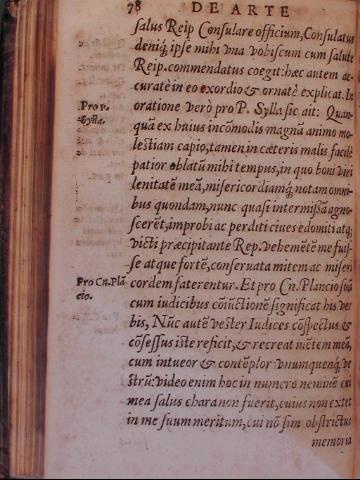 78 DE ARTE
salus Reip Consulare officium, Consulatus
deniq́; ipse mihi vna vobiscum cum salute
Reip. commendatus coegit: hæc autem ac-
curatè in eo exordio & ornatè explicat. In
oratione verò pro P. Sylla sic ait: Quan-
Pro P.
Sylla.
quã ex huius incõmodis magnã animo mo-
lestiam capio, tamen in cæteris malis facilè
patior oblatũ mihi tempus, in quo boni viri
lenitatẽ meã, misericordiamq́; notam omni-
bus quondam, nunc quasi intermissã agno-
scerẽt, improbi ac perditi ciues edomiti atq́;
victi præcipitante Rep. vehemẽtẽ me fuis-
se atque fortẽ, conseruata mitem ac miseri
Pro Cn. Plã
cio.
cordem faterentur. Et pro Cn. Plancio suã
cum iudicibus cõiũctionẽ significat his ver
bis, Nũc autẽ vester Iudices cõspectus &
cõsessus iste reficit, & recreat mẽtem meã,
cum intueor & contẽplor vnumquenq́; ve
strũ: video enim hoc in numero neminẽ cui
mea salus chara non fuerit, cuius non extet
in me suum meritum, cui nõ sim obstrictus
memoria